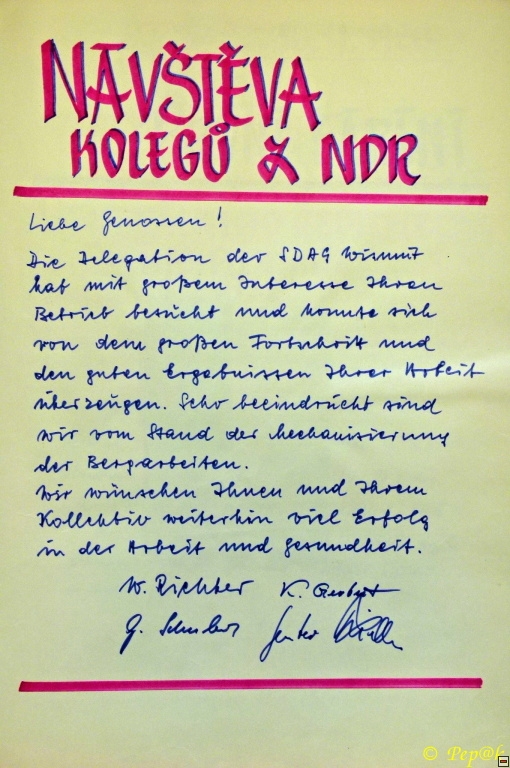 NÁVŠTĚVA
KOLEGŮ Z NDR
Liebe Genossen!
Die Delegation der SDAG Wismut
hat mit großem Interesse Ihren
Betrieb besucht und konnte sich
von dem großen Fortschritt und
den guten Ergebnissen Ihrer Arbeit
überzeugen. Sehr beeindruckt sind
wir vom Stand der Mechanisierung
der Bergarbeiten.
Wir wünschen Ihnen und Ihrem
Kollektiv weiterhin viel Erfolg
in der Arbeit und Gesundheit.
W. Richter K.
G.
© Pep@k